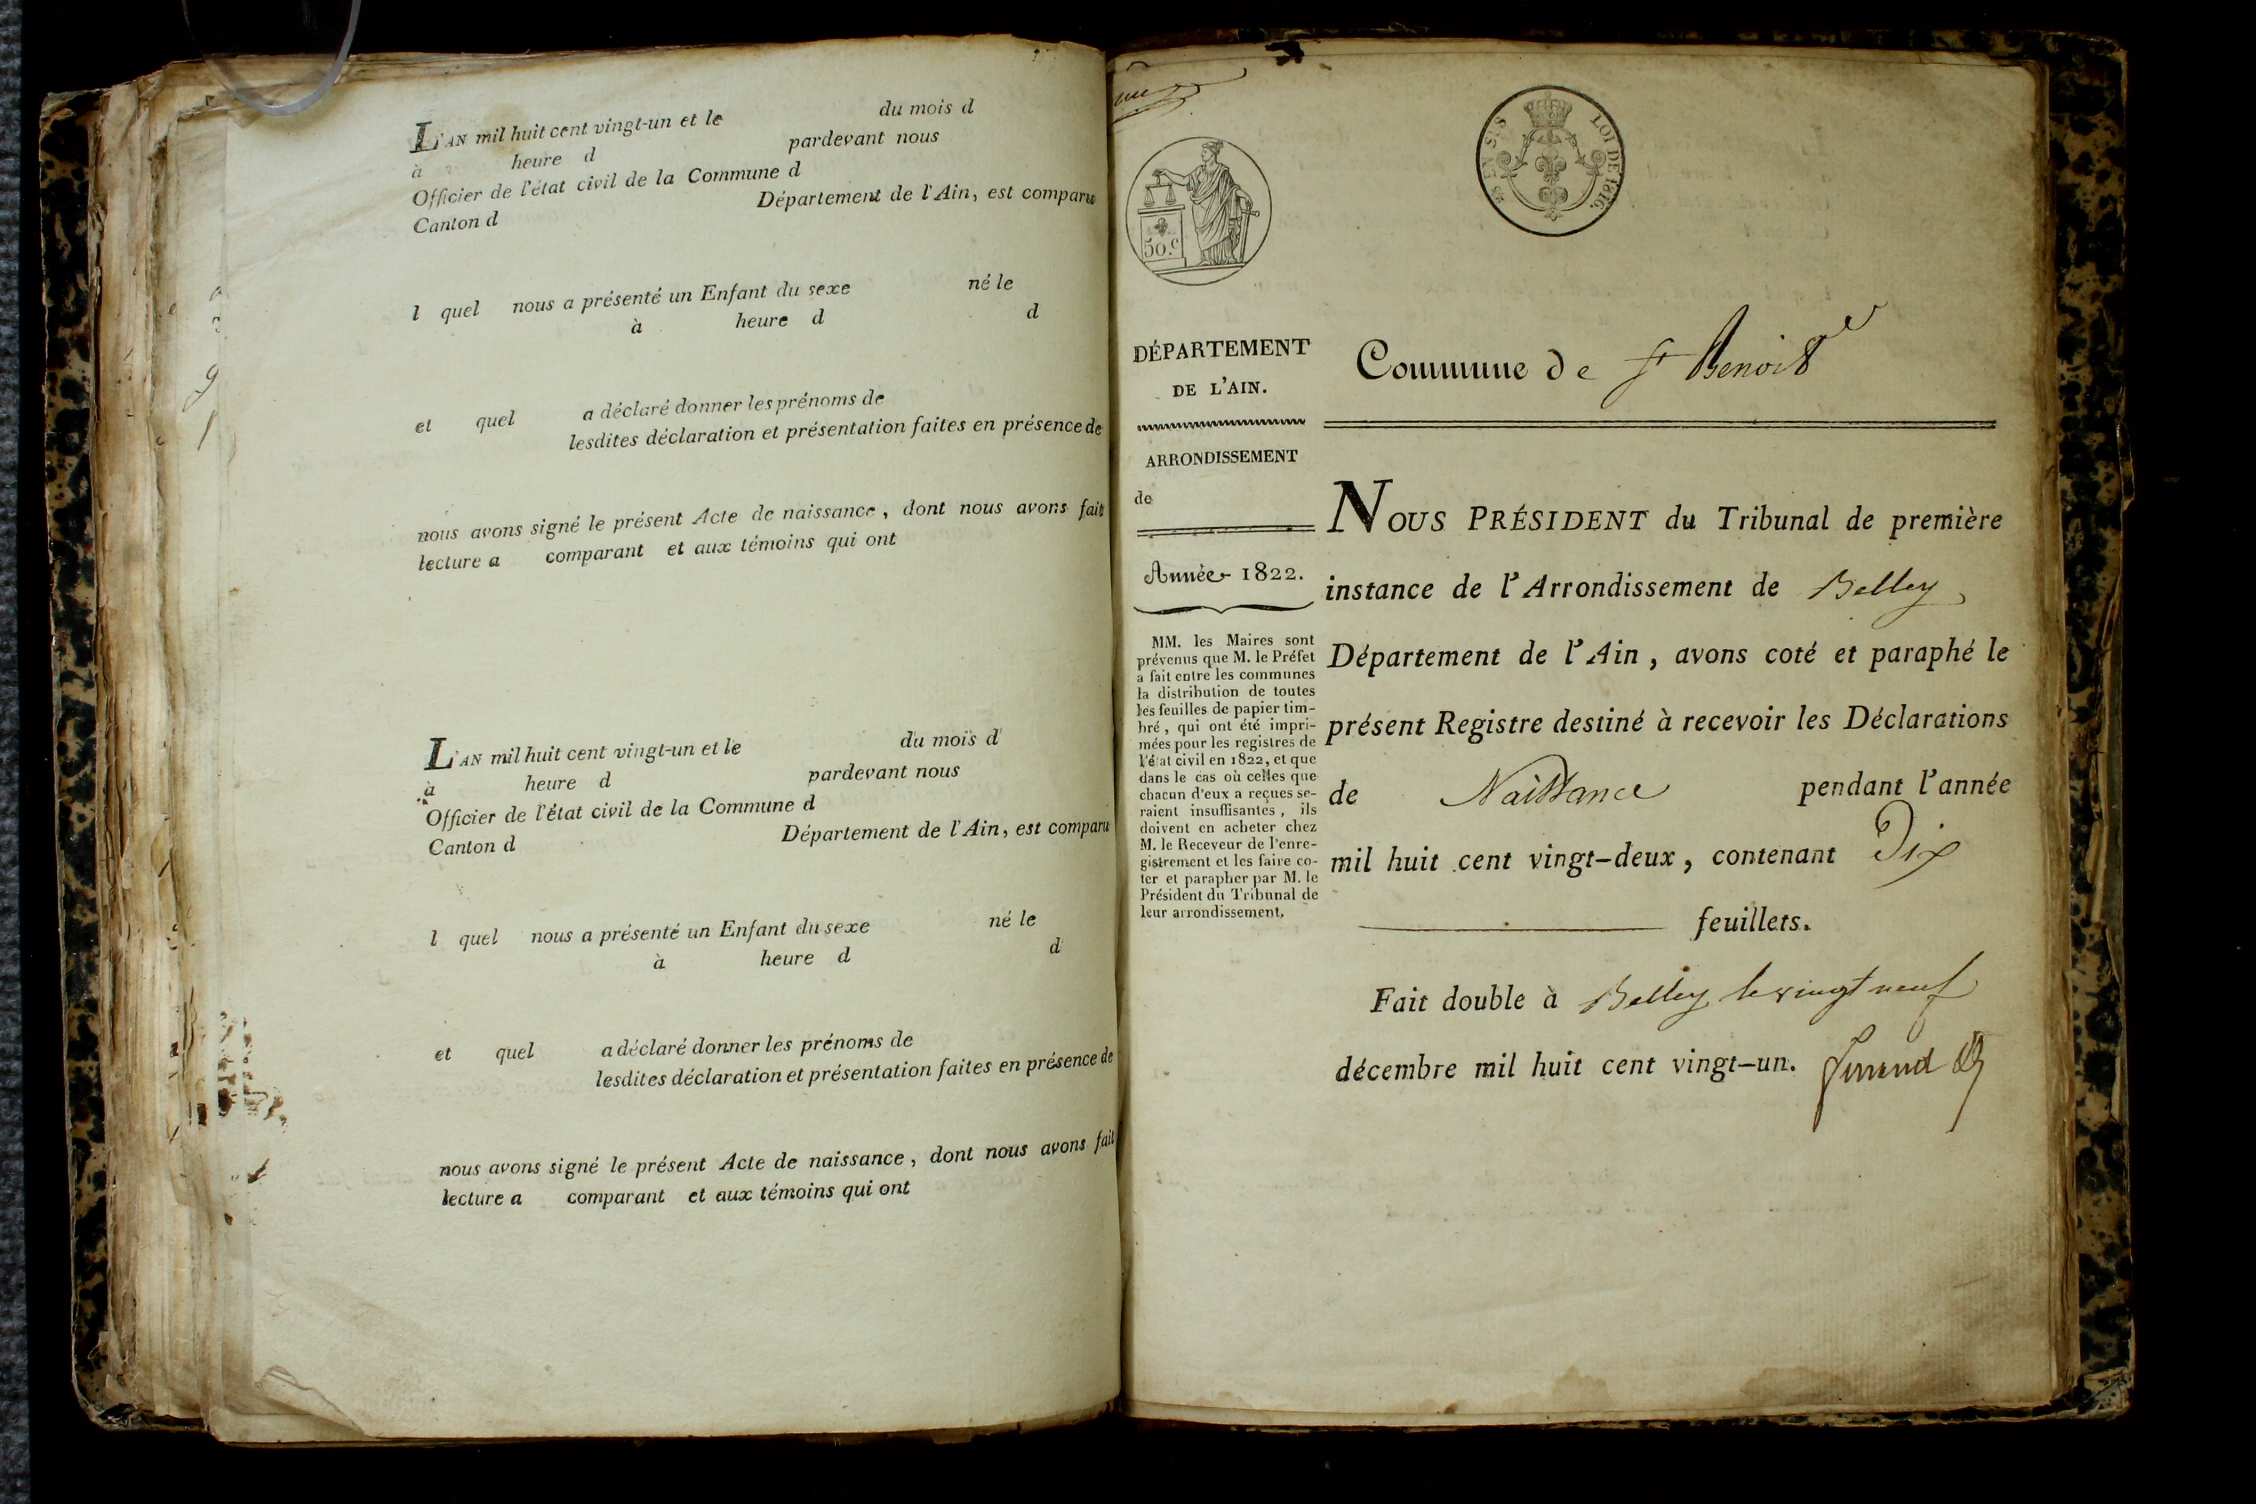 L'AN mil huit cent vingt-un et le du mois d
à heure d pardevant nous
Officier de l'état civil de la Commune d
Canton d Département de l'Ain, est comparu
l quel nous a présenté un Enfant du sexe né le
à heure d d
et quel a déclaré donner les prénoms de
lesdites déclaration et présentation faites en présence de
nous avons signé le présent Acte de naissance, dont nous avons fait
lecture a comparant et aux témoins qui ont
L'AN mil huit cent vingt-un et le du mois d
à heure d pardevant nous
Officier de l'état civil de la Commune d
Canton d Département de l'Ain, est comparu
l quel nous a présenté un Enfant du sexe né le
à heure d d
et quel a déclaré donner les prénoms de
lesdites déclaration et présentation faites en présence de
nous avons signé le présent Acte de naissance, dont nous avons fait
lecture a comparant et aux témoins qui ont
50.c
LOI DE 1816.
DÉPARTEMENT
DE L'AIN.
ARRONDISSEMENT
de
Année 1822.
MM. les Maires sont
prévenus que M. le Préfet
a fait entre les communes
la distribution de toutes
les feuilles de papier tim-
bré, qui ont été impri-
mées pour les registres de
l'état civil en 1822, et que
dans le cas où celles que
chacun d'eux a reçues se-
raient insuffisantes, ils
doivent en acheter chez
M. le Receveur de l'enre-
gistrement et les faire co-
ter et parapher par M. le
Président du Tribunal de
leur arrondissement.
Commune de St Benoit
NOUS PRÉSIDENT du Tribunal de première
instance de l'Arrondissement de Belley
Département de l'Ain, avons coté et paraphé le
présent Registre destiné à recevoir les Déclarations
de Naissance pendant l'année
mil huit cent vingt-deux, contenant Dix
feuillets.
Fait double à Belley le vingt neuf
décembre mil huit cent vingt-un.